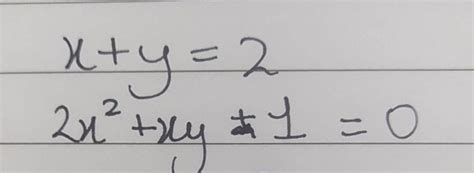 x+y=2
2x²+xy ± 1 = 0